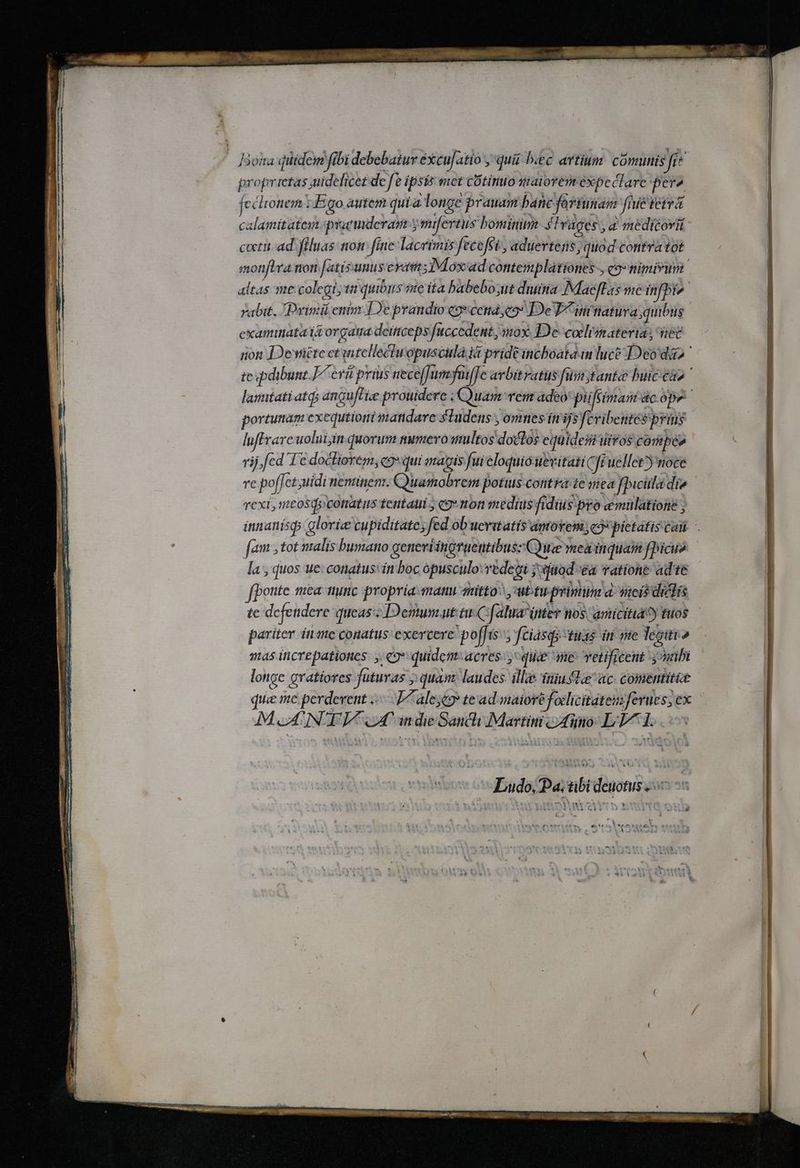 Bona quidem sibi debebatur excusatio, quũ hæc artium cõmunis sit
proprietas uidelicet de se ipsis met cõtinuo maiorem expectare per-
fectionem: Ego autem qui a longe prauam hanc fortunam siue tetrã
calamitatem præuideram; misertus hominum strages, a medicorũ
cœtu ad siluas non sine lacrimis secessi, aduertens, quod contra tot
monstra non satis unus eram; Mox ad contemplationes, & nimirum
altas me colegi, in quibus me ita habebo, ut diuina Maestas me inspi-
rabit. Primũ enim De prandio & cena, & De Vini natura, quibus
examinata iã organa deinceps succedent, mox De cœli materia, nec
non De mẽte et intellectu opuscula iã pridẽ inchoata in lucẽ Deo dã-
te, pdibunt. Verũ prius necessum fuisse arbitratus sum, tantæ huic ca-
lamitati atq; angustiæ prouidere: Quam rem adeo piissimam ac op-
portunam exequtioni mandare studens, omnes in ijs scribentes prius
lustrare uolui, in quorum numero multos doctos equidem uiros compe-
rij, sed Te doctiorem, & qui magis sui eloquio ueritati (si uellet) noce
re posset, uidi neminem. Quamobrem potius contra te mea spicula di-
rexi, meosq; conatus tentaui; & non medius fidius pro æmulatione,
innanisq; gloriæ cupiditate, sed ob ueritatis amorem, & pietatis cau
sam, tot malis humano generi ingruentibus: Quæ mea inquam spicu-
la, quos ue conatus in hoc opusculo redegi; quod ea ratione ad te
sponte mea nunc propria manu mitto, ut tu primum a meis dictis
te defendere queas: Demum ut tu (salua inter nos amicitia) tuos
pariter in me conatus exercere possis; sciasq; tuas in me legiti-
mas increpationes, & quidem acres, quæ me retificent, mihi
longe gratiores futuras, quam laudes illæ iniustæ ac comentitiæ
quæ me perderent. Vale, & te ad maiorẽ fœlicitatem serues, ex
MANTVA in die Sancti Martini Anno LVI.
Ludo, Pa, tibi deuotus.